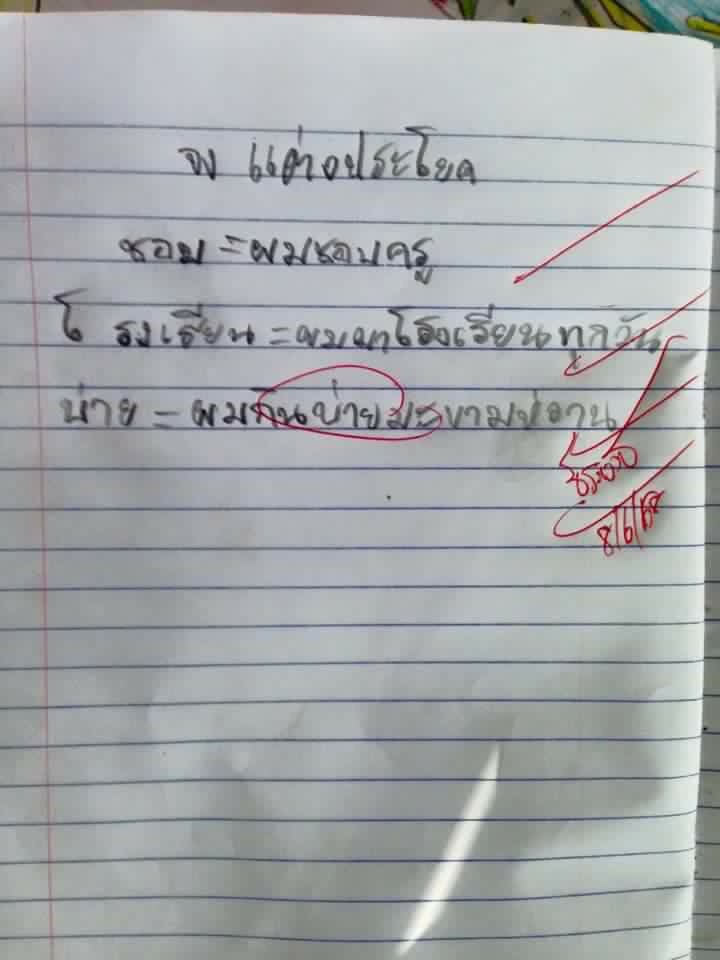 จง แต่งประโยค
ชอบ = ผมชอบครู
โรงเรียน = ผมมาโรงเรียนทุกวัน
บ่าย = ผมกินบ่ายมะขามป่อาน
8/6/68